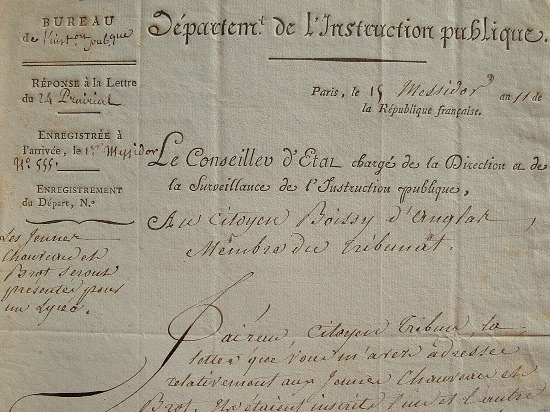 BUREAU
de l'inston publque
RÉPONSE à la Lettre
du 24 Prairial
ENREGISTRÉE à
l'arrivée, le 1er Messidor
No 555.
ENREGISTREMENT
du Départ, N.o
Les Jeunes
Chauveau et
Brot seront
présentés pour
un Lycée.
Départem.t de l'Instruction publique.
Paris, le 15 Messidor an 11 de
la République française.
LE CONSEILLER D'ETAT chargé de la Direction et de
la Surveillance de l'Instruction publique,
Au Citoyen Boissy d'Anglas,
Membre du Tribunat.
J'ai reçu, Citoyen Tribun, la
lettre que vous m'avez adressée
relativement aux Jeunes Chauveau et
Brot. Ils étaient inscrits l'un et l'autre